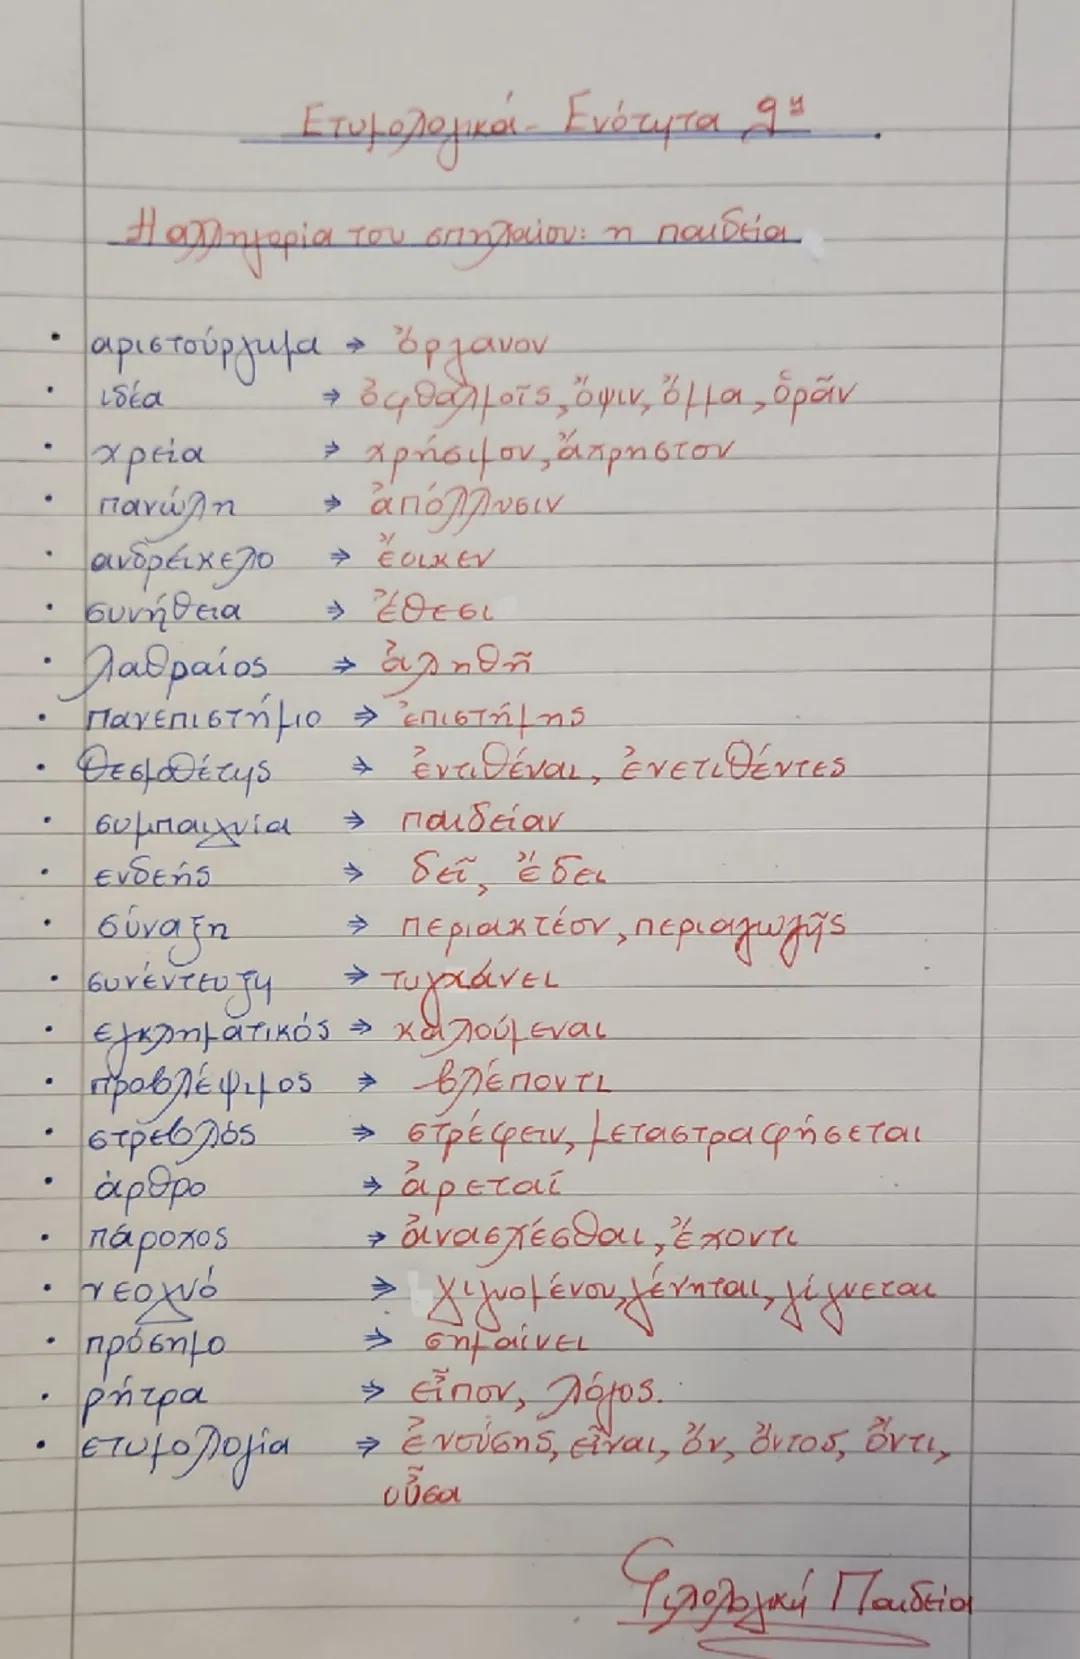 Ετυμολογικά - Ενότητα 9η.
Η αλληγορία του σπηλαίου: η παιδεία
• αριστούργημα → ὄργανον
• ιδέα ⇒ ὀφθαλμοῖς, ὄψιν, ὄμμα, ὁρᾶν
• χρεία ⇒ χρήσιμον, ἄχρηστον
• πανώλη ⇒ ἀπόλλυσιν
• ανδρείκελο ⇒ ἔοικεν
• συνήθεια ⇒ ἔθεσι
• λαθραίος ⇒ ἀληθῆ
• πανεπιστήμιο ⇒ ἐπιστήμης
• θεσμοθέτης ⇒ ἐντιθέναι, ἐνετιθέντες
• συμπαιχνία ⇒ παιδείαν
• ενδεής ⇒ δεῖ, ἔδει
• σύναξη ⇒ περιακτέον, περιαγωγῆς
• συνέντευξη ⇒ τυγχάνει
• εγκληματικός ⇒ καλούμεναι
• προβλέψιμος ⇒ βλέποντι
• στρεβλός ⇒ στρέφειν, μεταστραφήσεται
• άρθρο ⇒ ἀρεταί
• πάροχος ⇒ ἀνασχέσθαι, ἔχοντι
• νεογνό ⇒ γιγνομένου, γένηται, γίγνεται
• πρόσημο ⇒ σημαίνει
• ρήτρα ⇒ εἶπον, λόγος.
• ετυμολογία ⇒ ἐνούσης, εἶναι, ὄν, ὄντος, ὄντι,
οὖσα
Φιλολογική Παιδεία